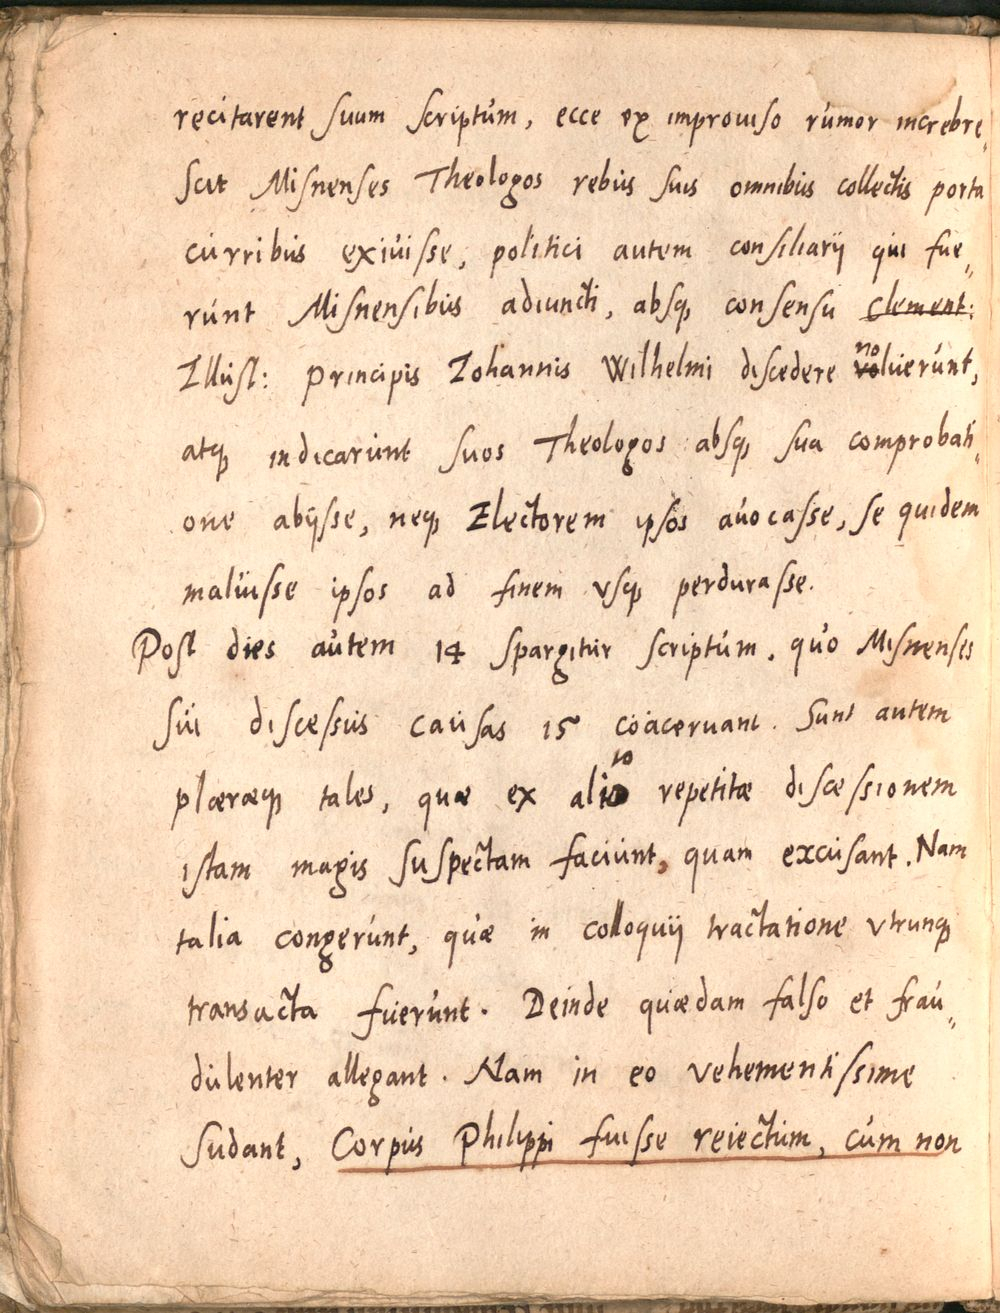 recitarent suum scriptum, ecce ex improuiso rumor increbre„
scit Misnenses Theologos rebus suis omnibus collectis porta
curribus exiuisse, politici autem consiliarij qui fue„
runt Misnensibus adiuncti, absq; consensu Clement:
Illust: Principis Iohannis Wilhelmi discedere noluerunt,
atq; indicarunt suos Theologos absq; sua comprobati„
one abijsse, neq; Electorem ipsos auocasse, se quidem
maluisse ipsos ad finem vsq; perdurasse.
Post dies autem 14 spargitur scriptum, quo Misnenses
sui discessus causas 15 coaceruant. Sunt autem
plæræq; tales, quæ ex alto repetitæ discessionem
istam magis suspectam faciunt, quam excusant. Nam
talia congerunt, quæ in colloquij tractatione vtrunq;
transacta fuerunt. Deinde quædam falso et frau„
dulenter allegant. Nam in eo vehementissime
sudant, Corpus Philippi fuisse reiectum, cum non